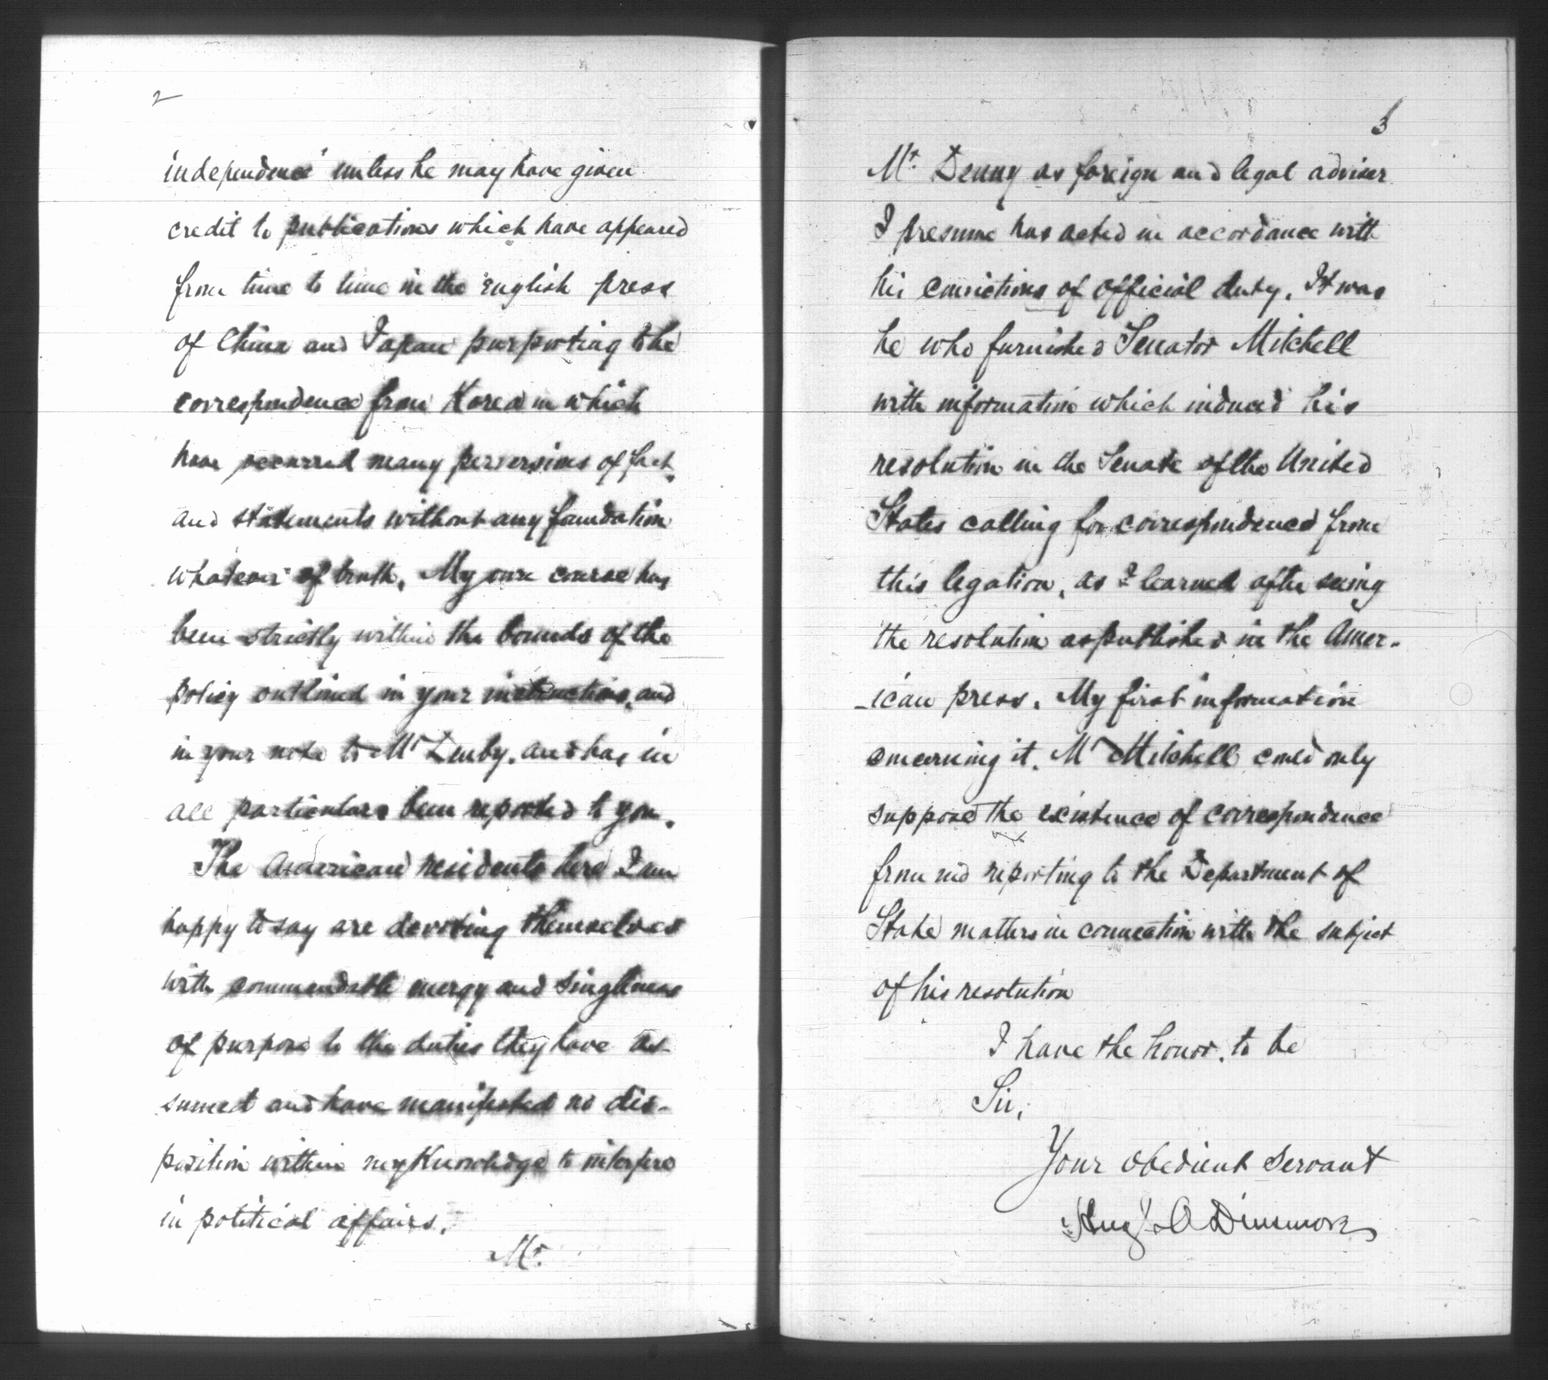 2
independence" unless he may have given
credit to publications which have appeared
from time to time in the English press
of China and Japan purporting to be
correspondence from Korea in which
have occurred many perversions of fact
and statements without any foundation
whatever of truth. My own course has
been strictly within the bounds of the
policy outlined in your instructions, and
in your note to Mr Denby, and has in
all particulars been reported to you.
The American residents here I am
happy to say are devoting themselves
with commendable energy and singleness
of purpose to the duties they have as-
sumed and have manifested no dis-
position within my knowledge to interfere
in political affairs.
Mr.
3
Mr. Denny as foreign and legal adviser
I presume has acted in accordance with
his convictions of official duty. It was
he who furnished Senator Mitchell
with information which induced his
resolution in the Senate of the United
States calling for correspondence from
this legation, as I learned after seeing
the resolution as published in the Amer-
-ican press. My first information
concerning it. Mr Mitchell could only
suppose the existence of correspondence
from me reporting to the Department of
State matters in connection with the subject
of his resolution
I have the honor, to be
Sir,
Your obedient servant
Hugh A Dinsmore